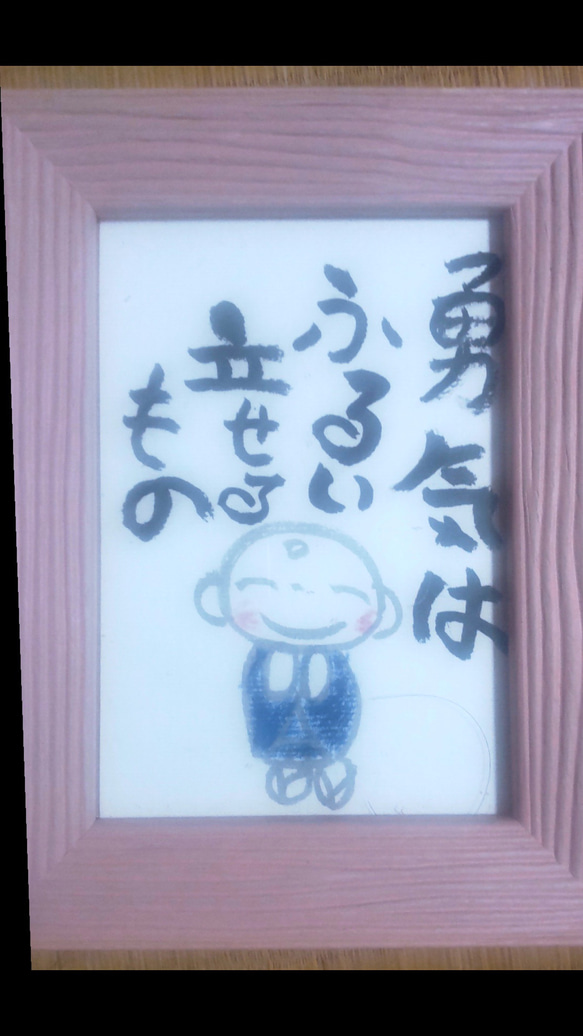 勇気は
ふるい
立せる
もの